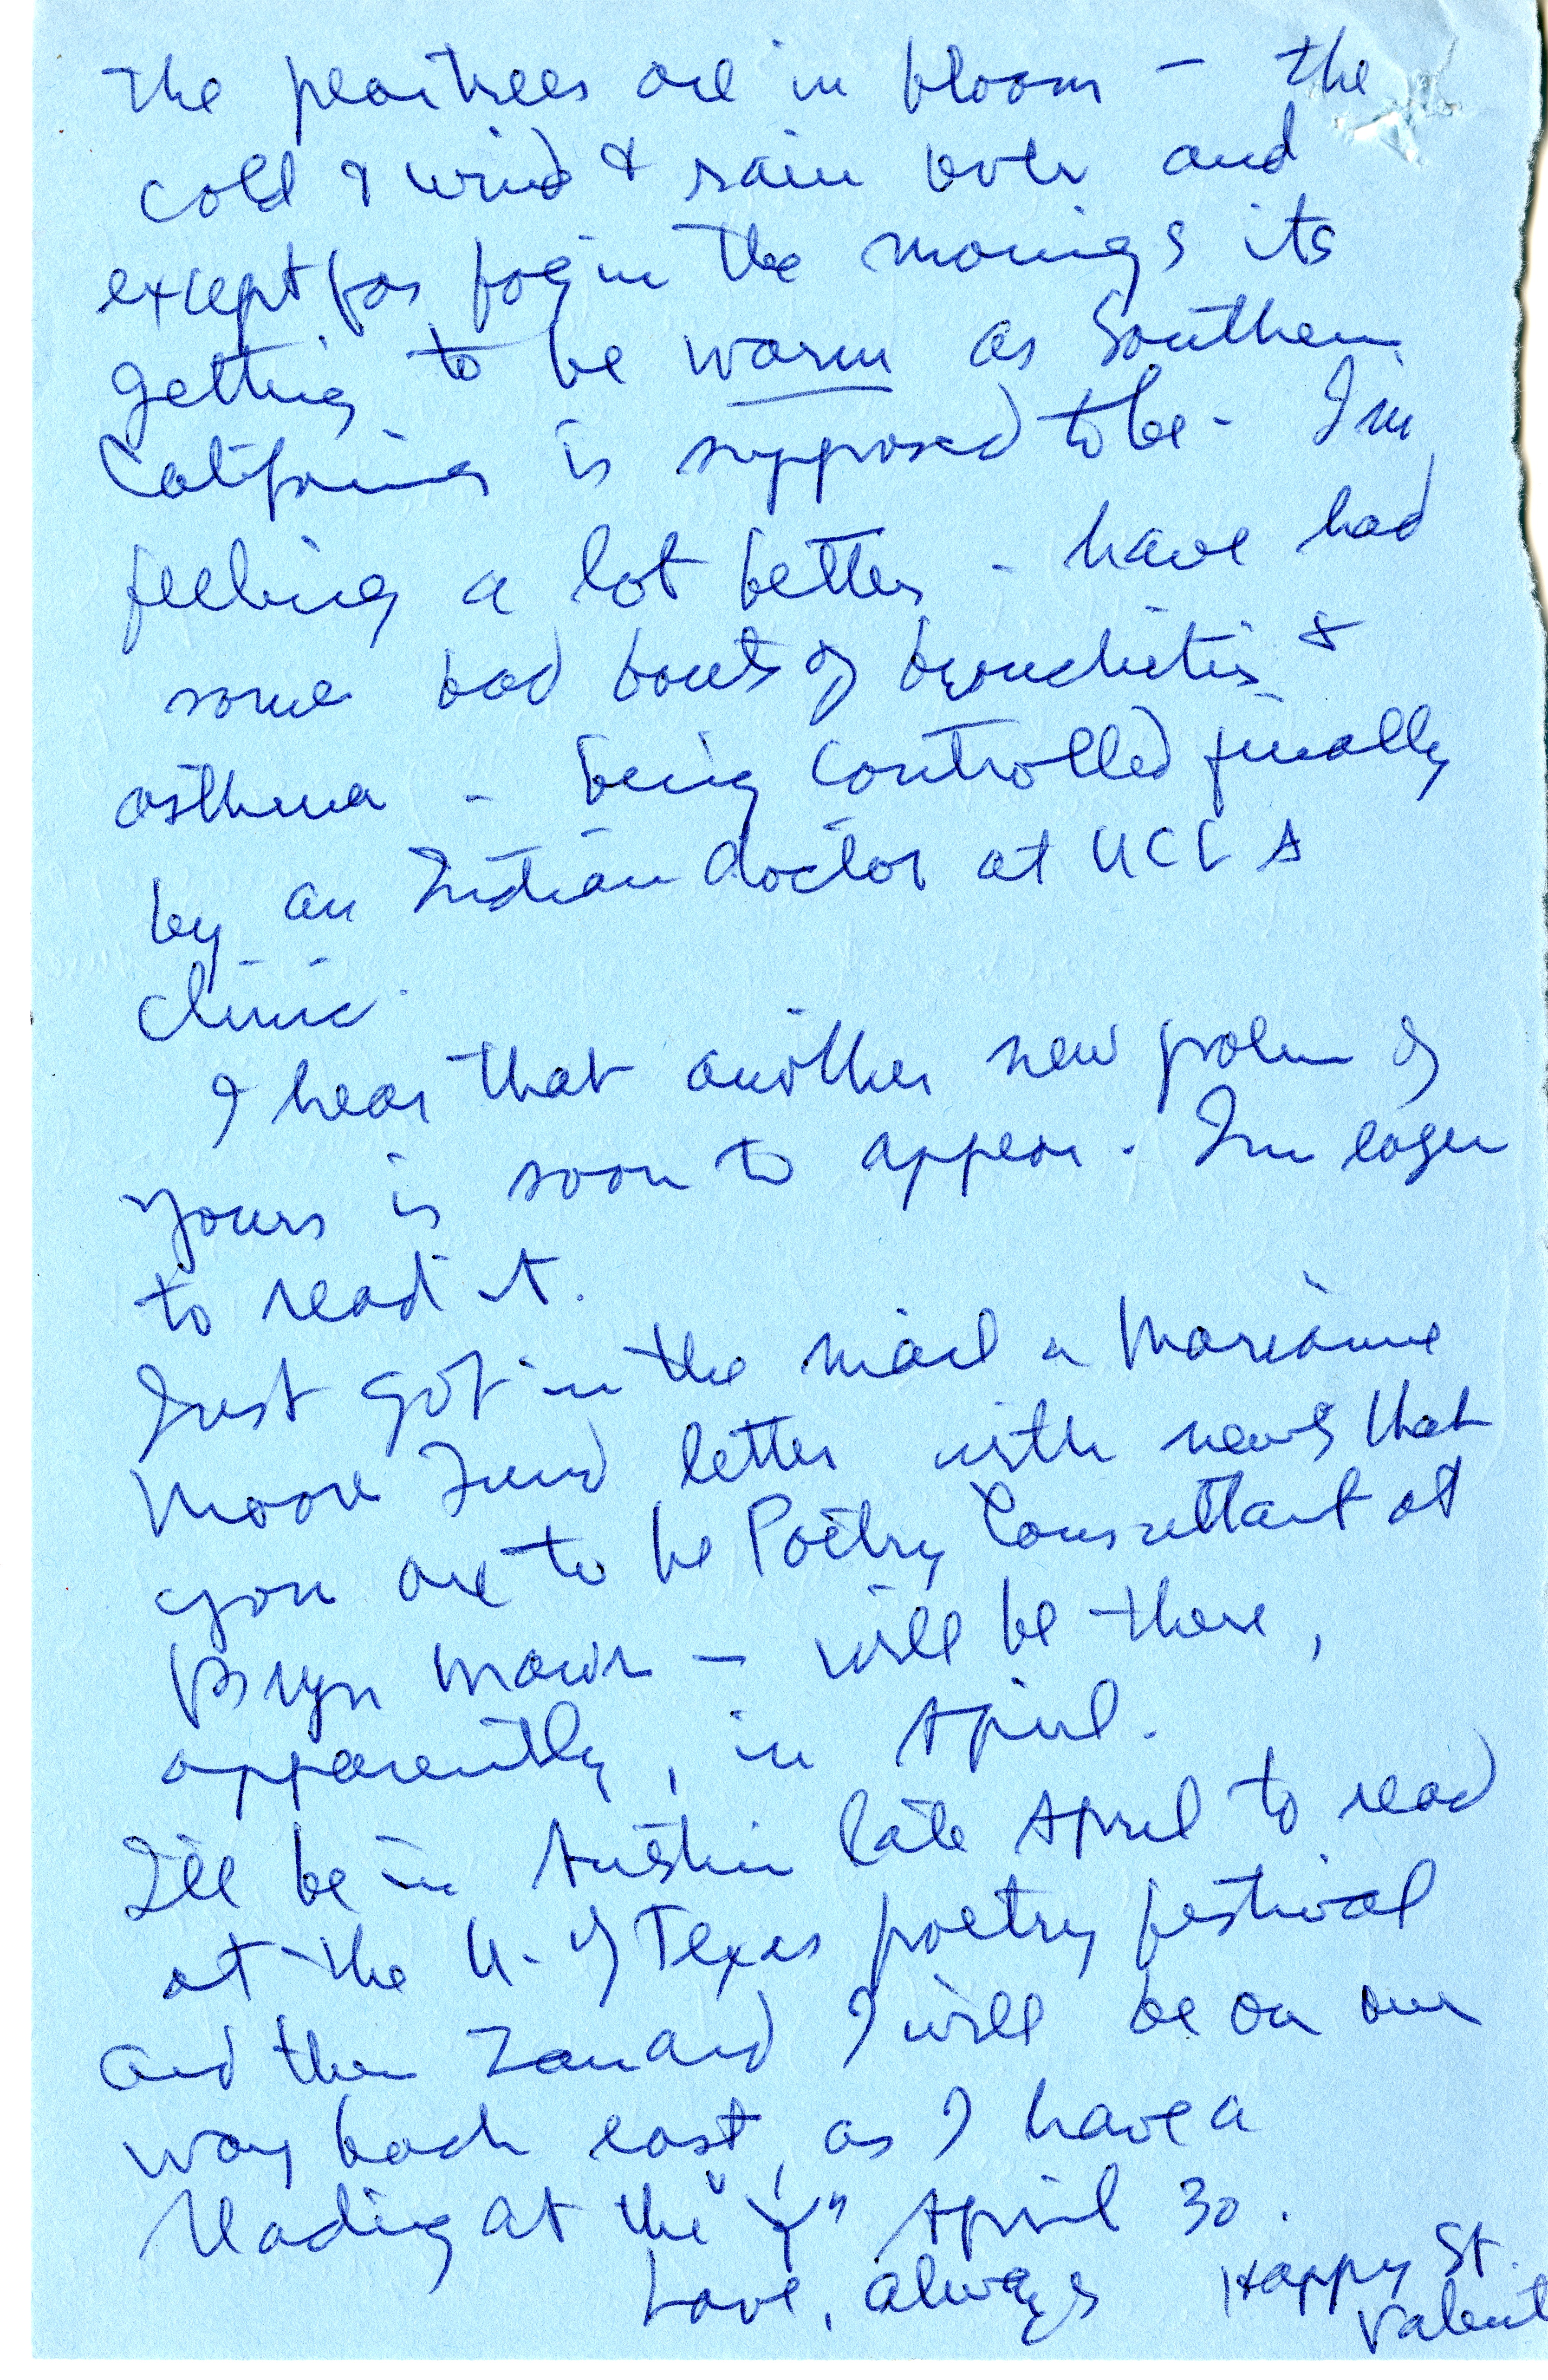 The peartrees are in bloom – the
cold & wind & rain over and
except for fog in the mornings its
getting to be warm as Southern
California is supposed to be. I'm
feeling a lot better – have had
some bad bouts of bronchitis &
asthma – being controlled finally
by an Indian doctor at UCLA
clinic.
I hear that another new poem of
yours is soon to appear. I'm eager
to read it.
Just got in the mail a Marianne
Moore Fund letter with news that
you are to be Poetry Consultant at
Bryn Mawr – will be there,
apparently, in April.
I'll be in Austin late April to read
at the U. of Texas poetry festival
and then Zan and I will be on our
way back east, as I have a
reading at the "Y" April 30.
Love, always
Happy St.
Valent